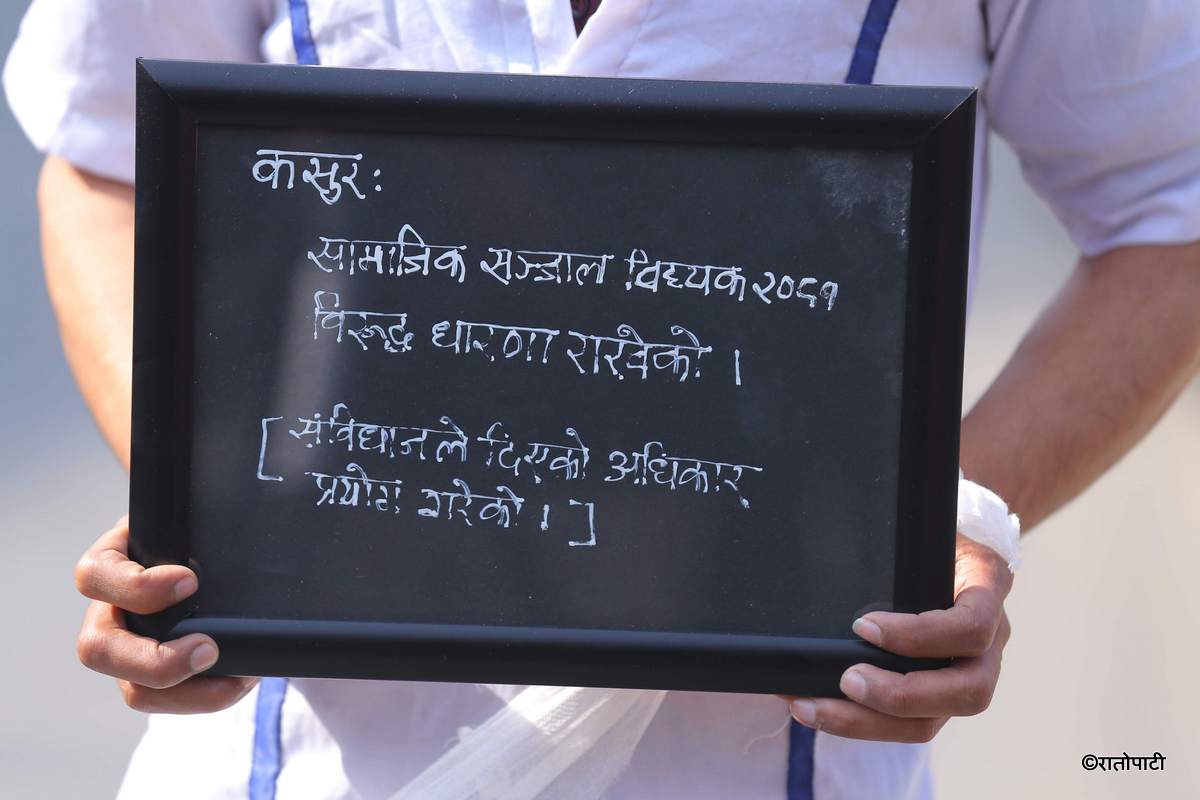 कसुर:
सामाजिक सञ्जाल विद्ययक २०८१
विरुद्ध धारणा राखेको ।
[ संविधानले दिएको अधिकार
प्रयोग गरेको । ]
©रातोपाटी